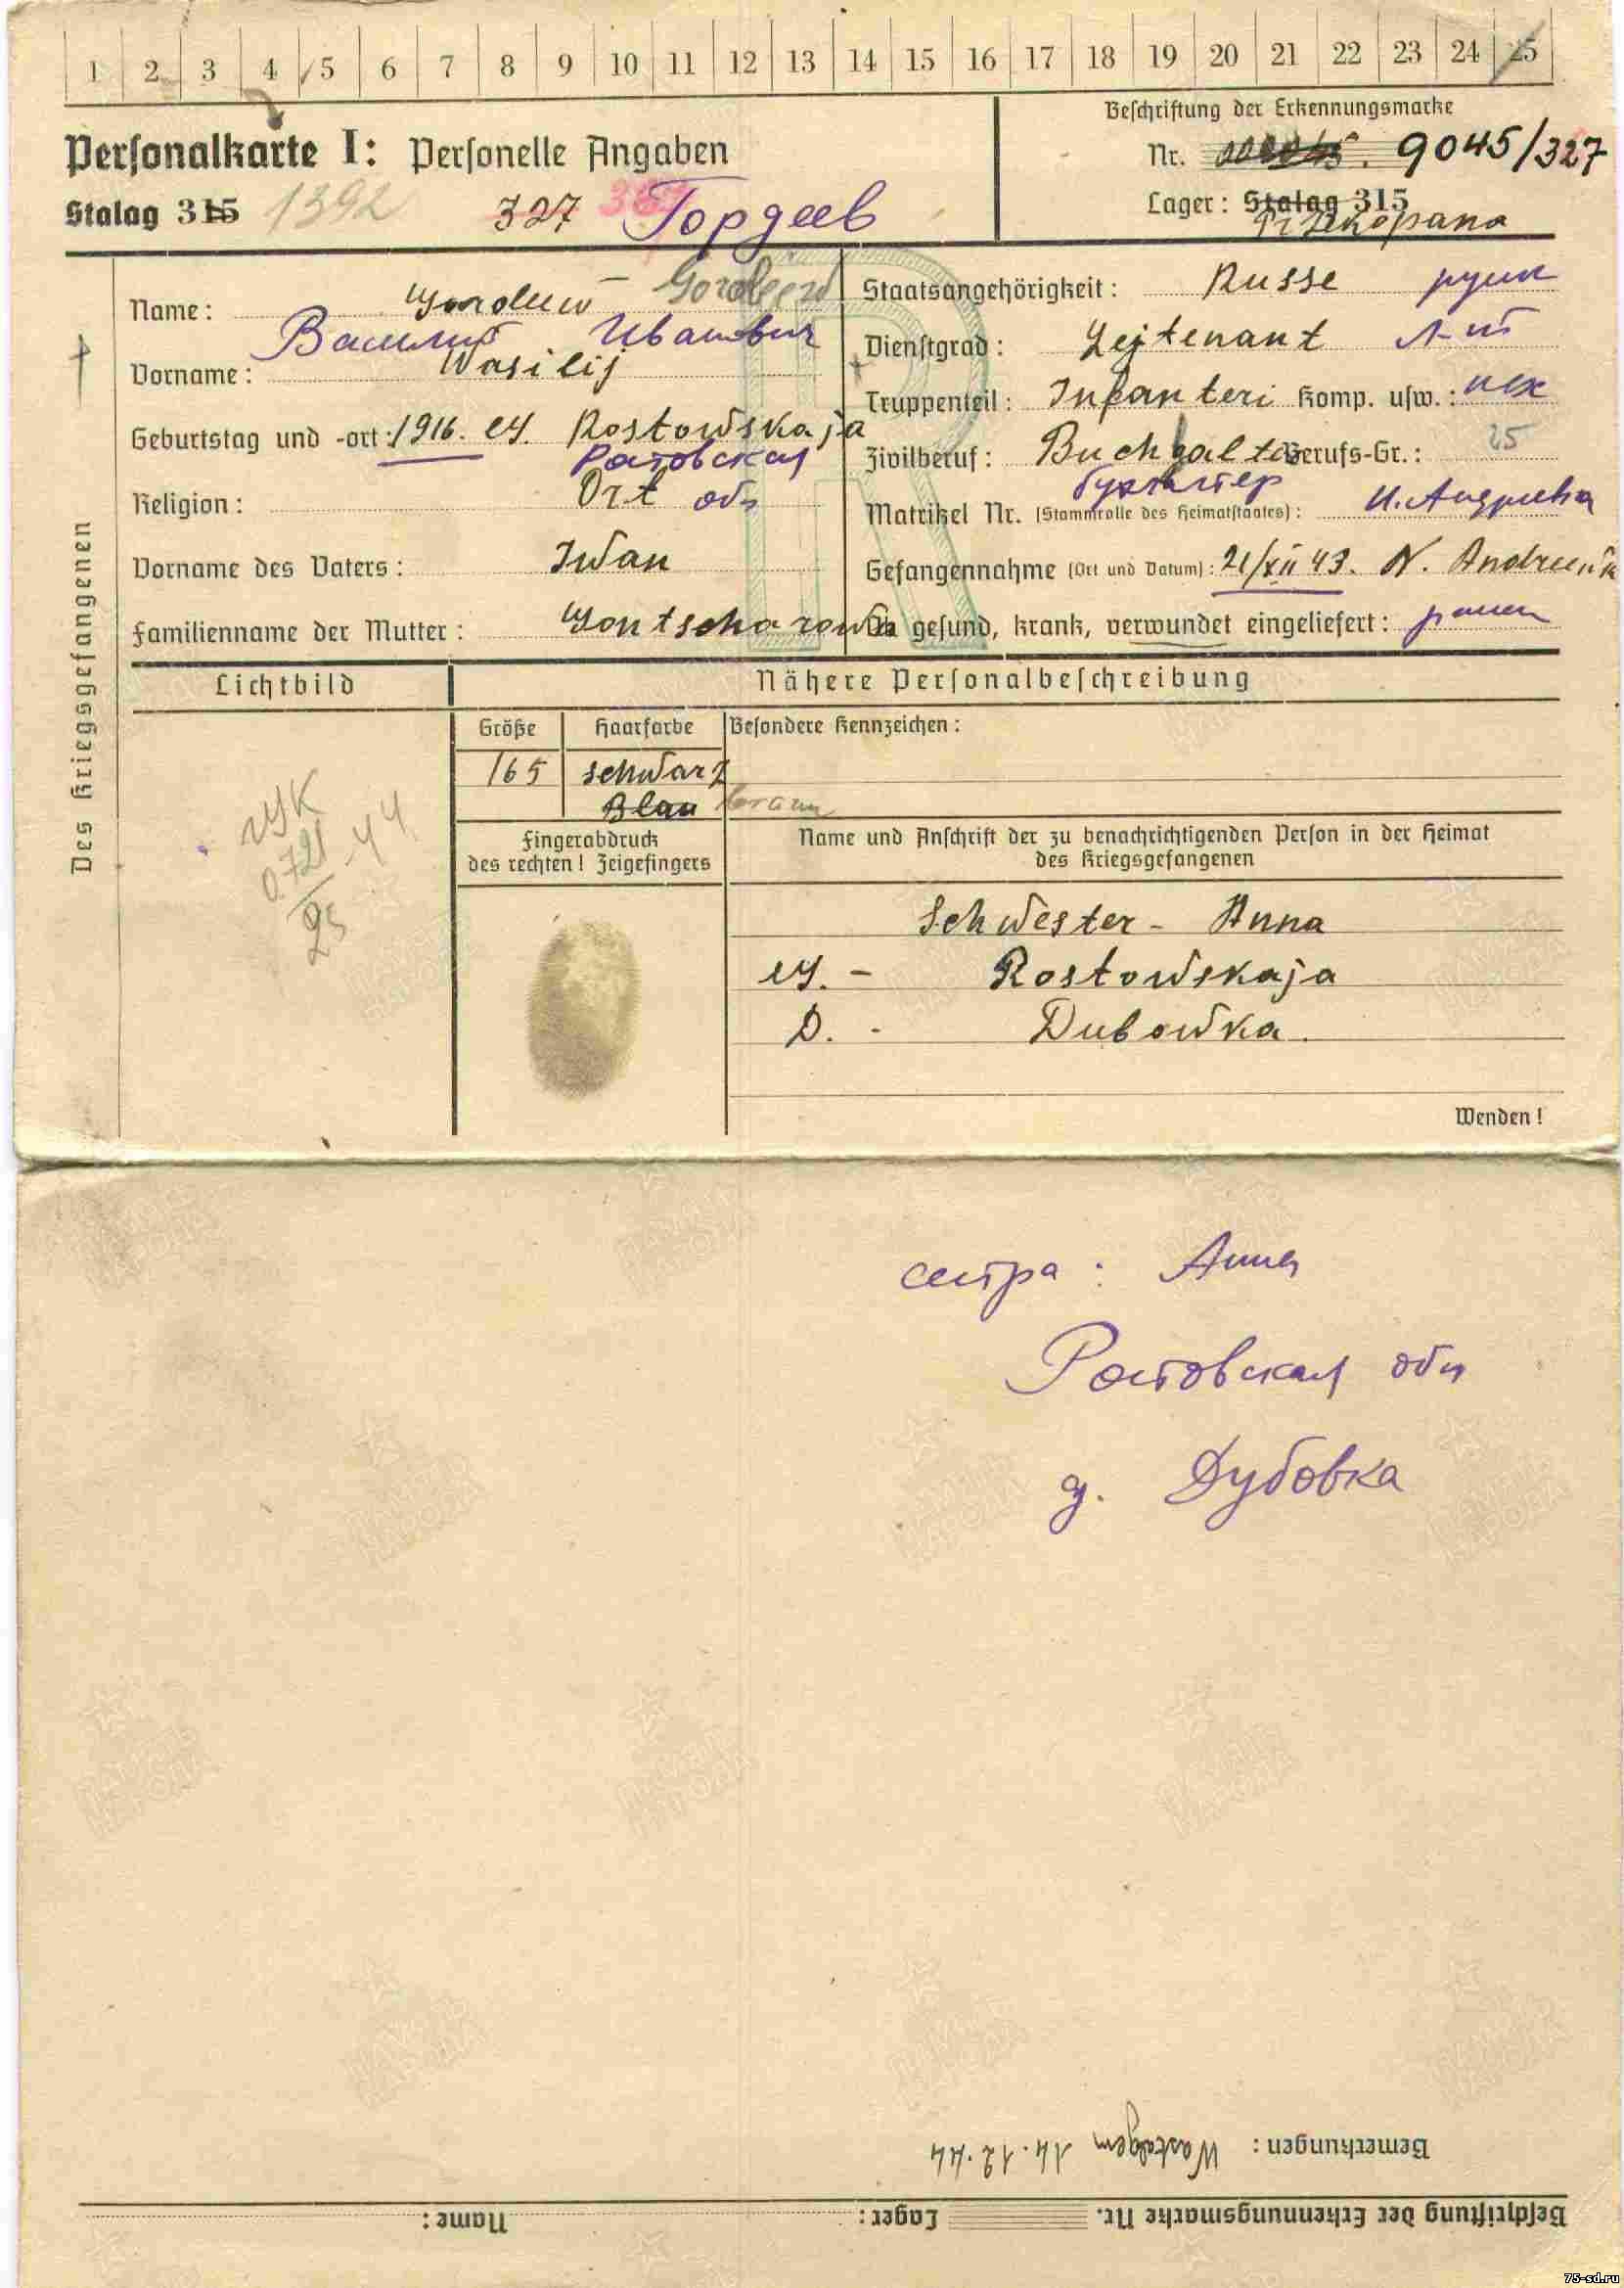 1 2 3 4 5 6 7 8 9 10 11 12 13 14 15 16 17 18 19 20 21 22 23 24 25
Beschriftung der Erkennungsmarke
Personalkarte I: Personelle Angaben
Nr. 9045/327
Stalag 315 1392 327 Гордеев
Lager: Stalag 315
Des Kriegsgefangenen
Name: Gordeew
Василий Иванович
Vorname: Wasilij
Geburtstag und -ort: 1916. Rostowskaja
Ростовская
Religion: Ort обл
Vorname des Vaters: Iwan
Familienname der Mutter: Gontscharowa
Staatsangehörigkeit: Russe русск
Dienstgrad: Lejtenant Л-т
Truppenteil: Infanteri Komp. usw.: пех
Zivilberuf: Buchhalter Berufs-Gr.: 25
бухгалтер
Matrikel Nr. (Stammrolle des Heimatstaates): Н. Андреевка
Gefangennahme (Ort und Datum): 21/XII 43. N.
Ob gesund, krank, verwundet eingeliefert: ранен
Lichtbild
Nähere Personalbeschreibung
Größe Haarfarbe Besondere Kennzeichen:
165 schwarz
Blau braun
Fingerabdruck
des rechten! Zeigefingers
Name und Anschrift der zu benachrichtigenden Person in der Heimat
des Kriegsgefangenen
Schwester - Anna
Rostowskaja
D. - Dubowka.
Wenden!
сестра: Анна
Ростовская обл
д. Дубовка
Bemerkungen: 14.12.44
Beschriftung der Erkennungsmarke Nr. Lager: Name:
75-sd.ru